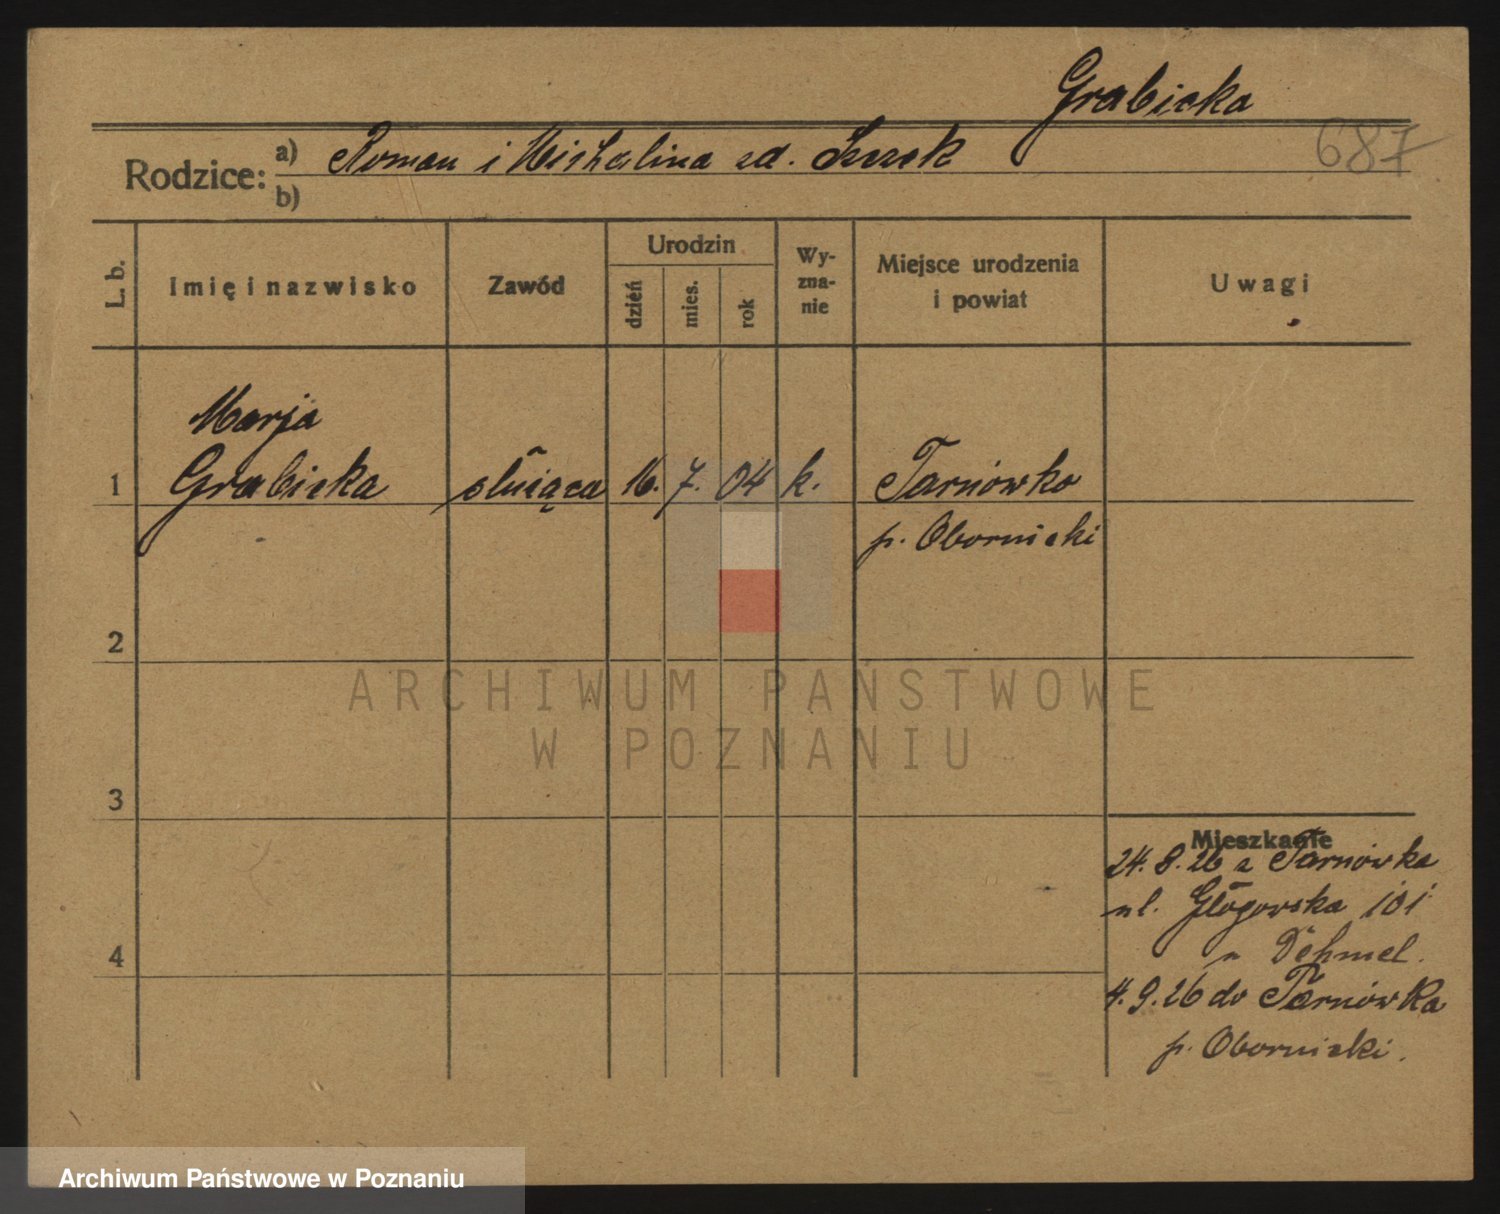 Grabicka
687
Rodzice: a) Roman i Michalina zd.
b)
L. b.
Imię i nazwisko
Zawód
Urodzin
dzień
mies.
rok
Wy-
zna-
nie
Miejsce urodzenia
i powiat
Uwagi
Marja
1 Grabicka służąca 16. 7. 04 k. Tarnówko
p. Obornicki
2
ARCHIWUM PAŃSTWOWE
W POZNANIU
3
Mieszkanie
24.8.26 z Tarnówka
ul. Głogowska 101
4
u Dehmel.
4.9.26 do Tarnówka
p. Obornicki.
Archiwum Państwowe w Poznaniu